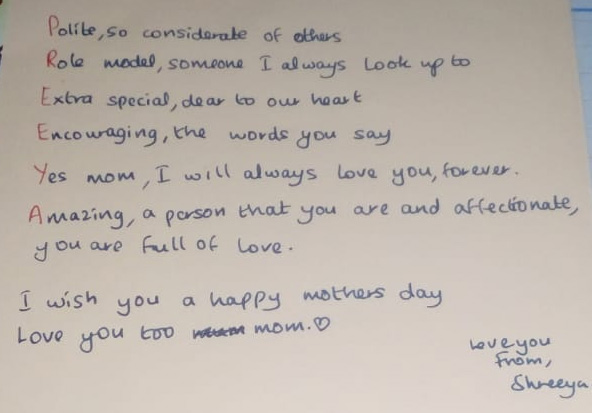 Polite, so considerate of others
Role model, someone I always look up to
Extra special, dear to our heart
Encouraging, the words you say
Yes mom, I will always love you, forever.
Amazing, a person that you are and affectionate,
you are full of love.
I wish you a happy mothers day
Love you too mom.♡
Love you
From,
Shreeya